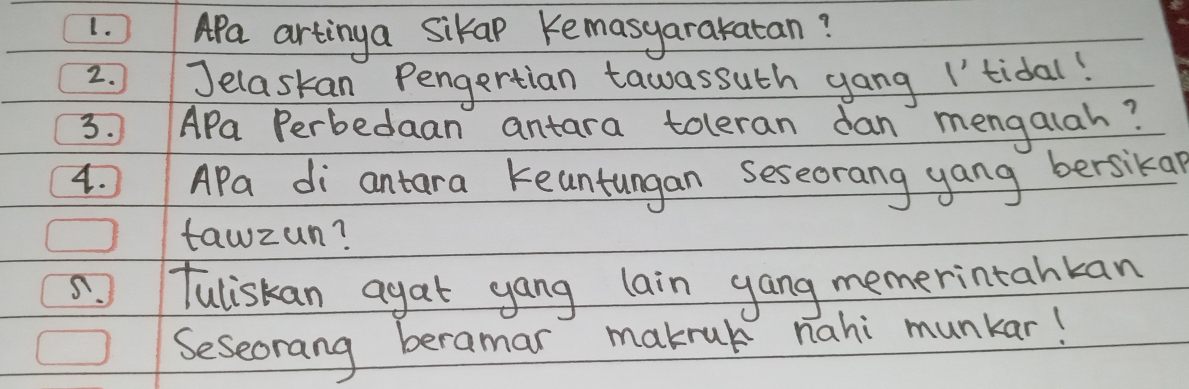 1. Apa artinya sikap kemasyarakatan?
2. Jelaskan Pengertian tawassuth yang i'tidal!
3. Apa Perbedaan antara toleran dan mengalah?
4. Apa di antara keuntungan seseorang yang bersikap
tawzun?
5. Tuliskan ayat yang lain yang memerintahkan
Seseorang beramar makruk nahi munkar!